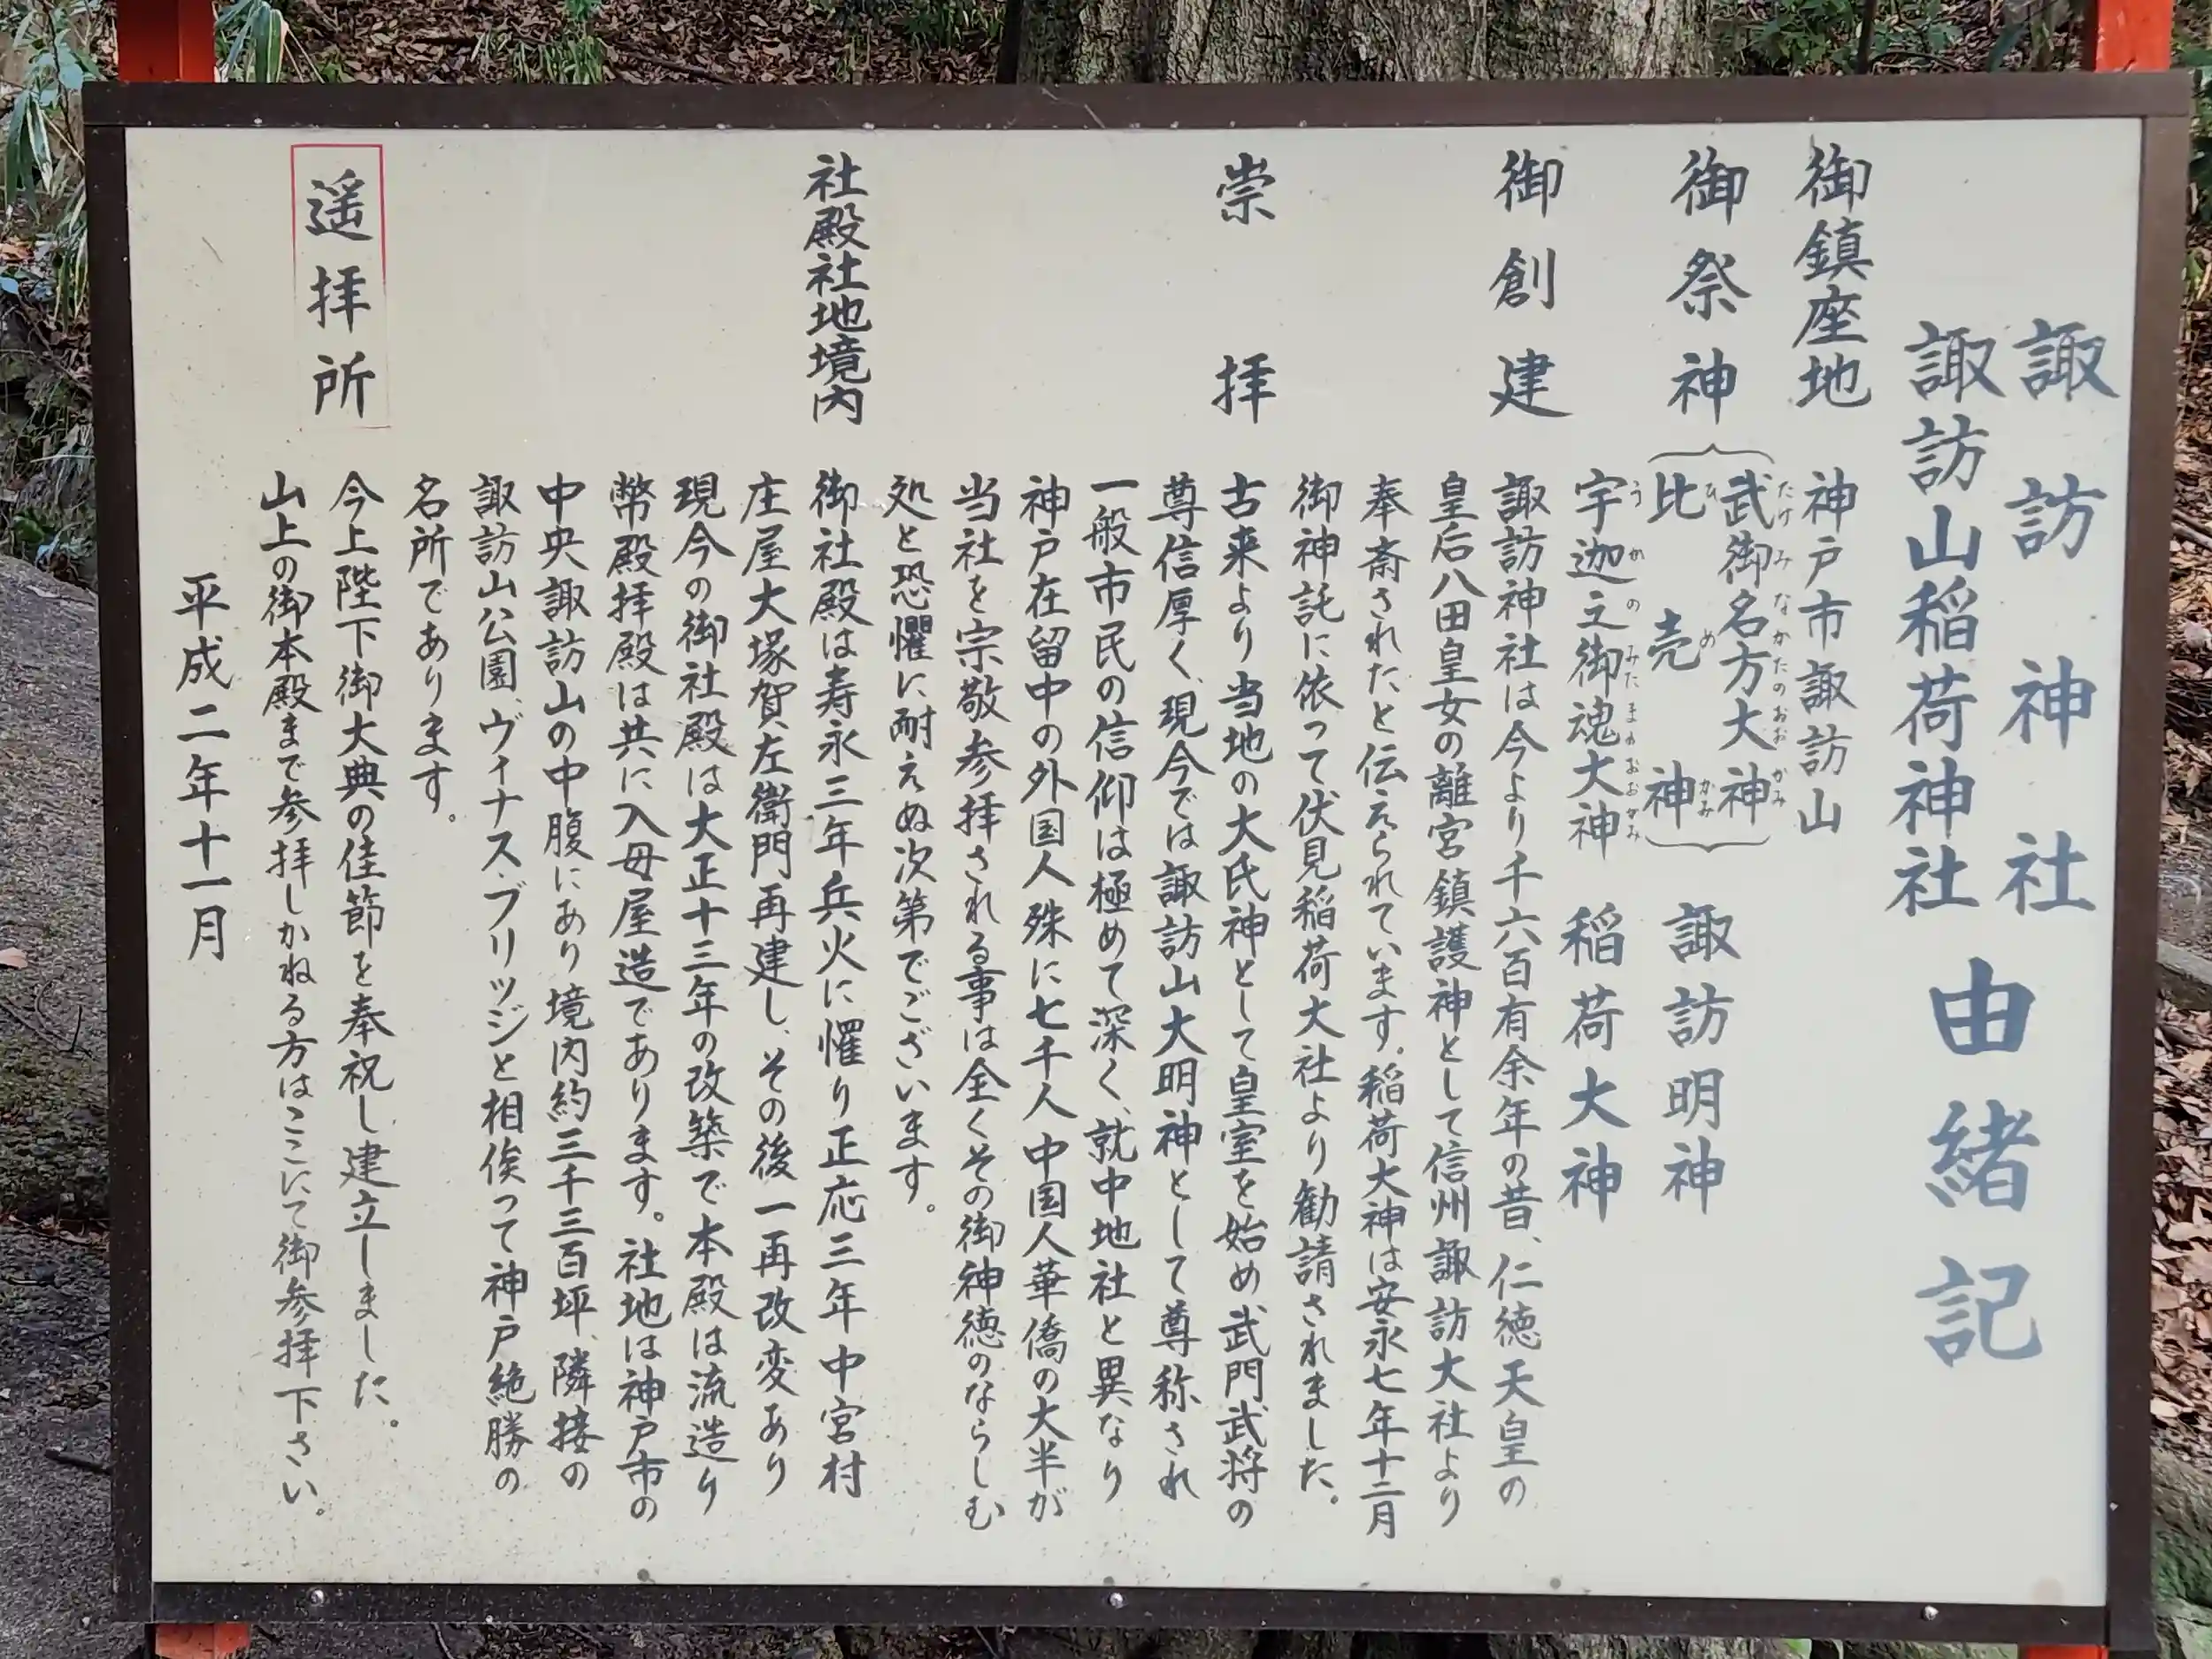 諏訪神社
諏訪山稲荷神社
由緒記
御鎮座地 神戸市諏訪山
御祭神 武御名方大神 諏訪明神
たけみなかたのおおかみ
比売神
ひめかみ
宇迦之御魂大神 稲荷大神
うかのみたまのおおかみ
御創建 諏訪神社は今より千六百有余年の昔、仁徳天皇の
皇后八田皇女の離宮鎮護神として信州諏訪大社より
奉斎されたと伝えられています。稲荷大神は安永七年十二月
御神託に依って伏見稲荷大社より勧請されました。
崇拝 古来より当地の大氏神として皇室を始め武門、武将の
尊信厚く、現今では諏訪山大明神として尊称され
一般市民の信仰は極めて深く、就中地社と異なり
神戸在留中の外国人殊に七千人中国人華僑の大半が
当社を宗敬参拝される事は全くその御神徳のならしむ
処と恐懼に耐えぬ次第でございます。
社殿社地境内 御社殿は寿永三年兵火に懼り正応三年中宮村
庄屋大塚賀左衛門再建し、その後一再改変あり
現今の御社殿は大正十三年の改築で本殿は流造り
幣殿拝殿は共に入母屋造であります。社地は神戸市の
中央諏訪山の中腹にあり境内約三千三百坪、隣接の
諏訪山公園、ヴィナス・ブリッジと相俟って神戸絶勝の
名所であります。
遥拝所 今上陛下御大典の佳節を奉祝し建立しました。
山上の御本殿まで参拝しかねる方はここにて御参拝下さい。
平成二年十一月